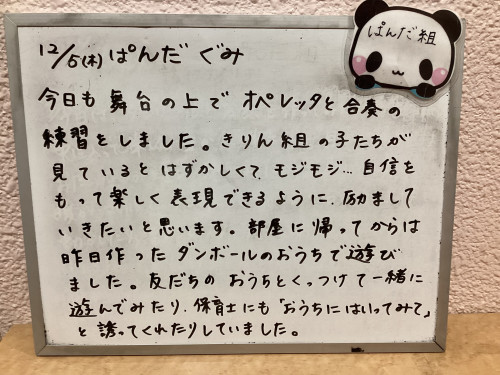 ぱんだ組
12/5(木) ぱんだ ぐみ
今日も 舞台の上で オペレッタと合奏の
練習をしました。きりん組の子たちが
見ているとはずかしくて、モジモジ…自信を
もって楽しく表現できるように、励まして
いきたいと思います。部屋に帰ってからは
昨日作ったダンボールのおうちで遊び
ました。友だちの おうちとくっつけて一緒に
遊んでみたり、保育士にも「おうちにはいってみて」
と誘ってくれたりしていました。